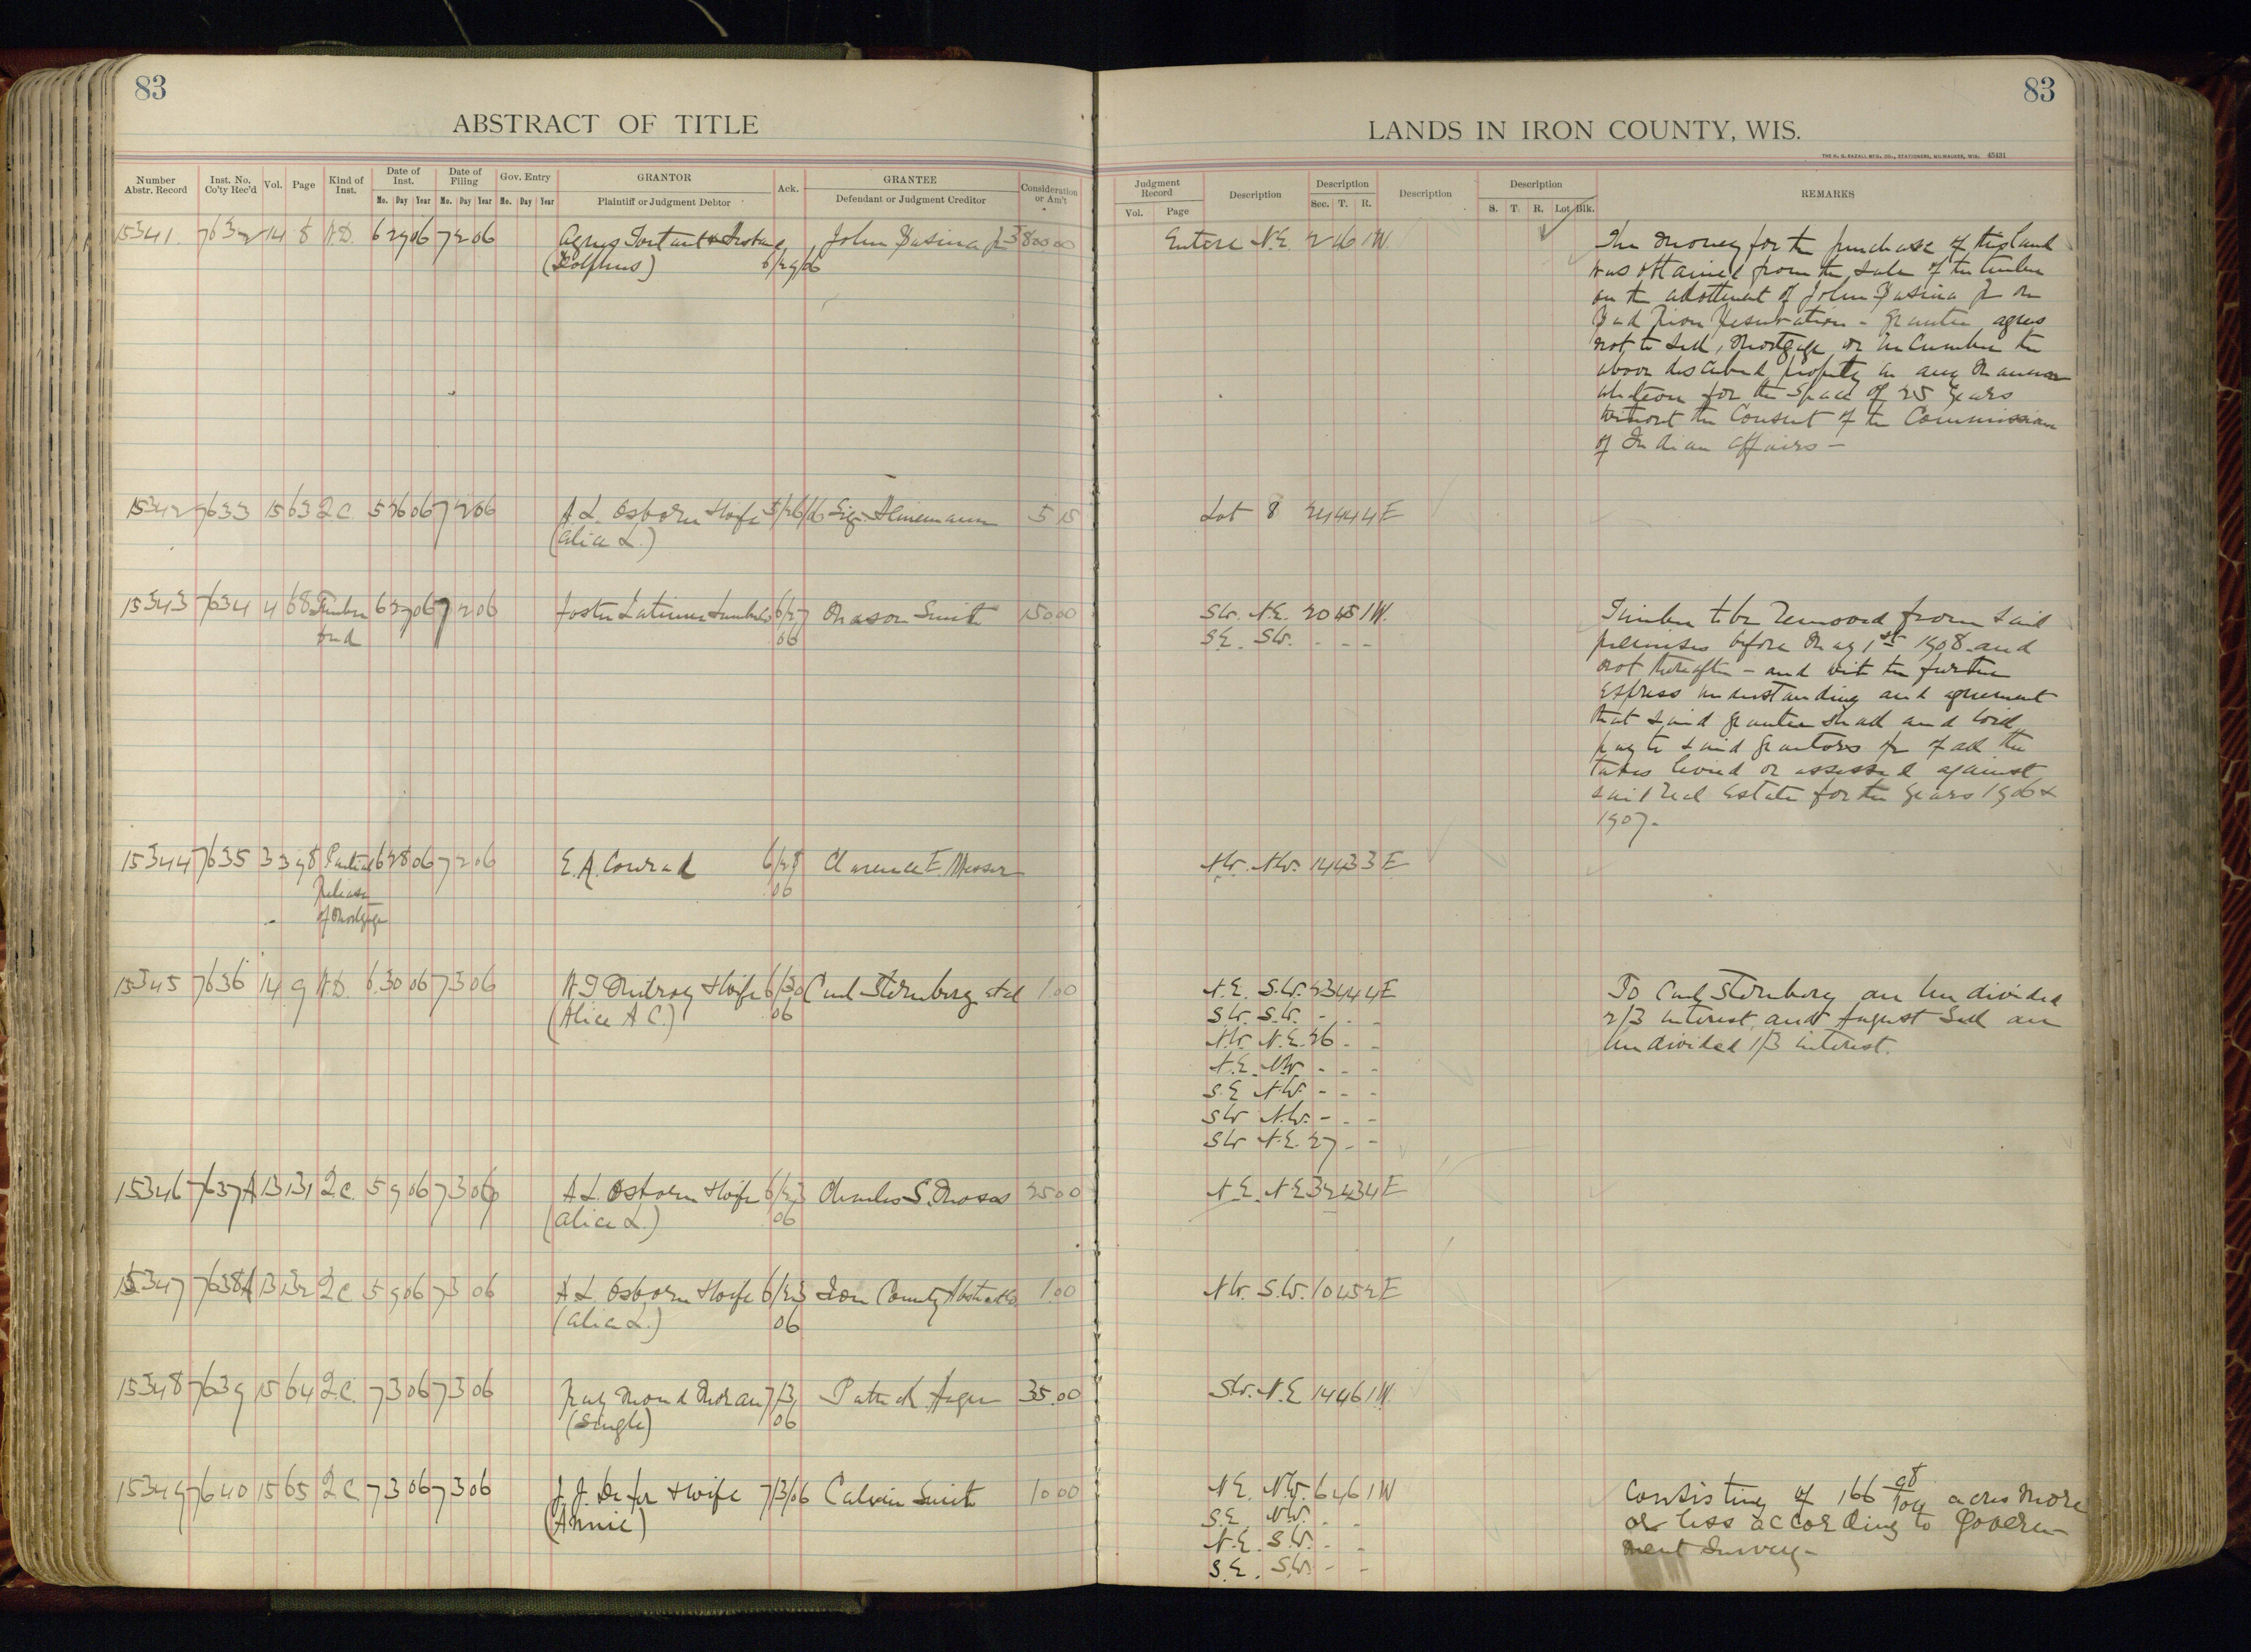 83
ABSTRACT OF TITLE
Number Abstr. Record
Inst. No. Co'ty Rec'd
Vol.
Page
Kind of Inst.
Date of Inst.
Mo. Day Year
Date of Filing
Mo. Day Year
Gov. Entry
Mo. Day Year
GRANTOR
Plaintiff or Judgment Debtor
Ack.
GRANTEE
Defendant or Judgment Creditor
Consideration or Am't
15341. 7632 14 8 W.D. 6 29 06 7 2 06 Agnes & Husband John Jr 3800 00
(Dolphus) 6/29/06
15342 7633 15 63 Q.C. 5 26 06 7 2 06 A L. Osborn & Wife 5/26/06 Sig. Heinemann 5 15
(Alice L.)
15343 7634 4 68 Timber 6 27 06 7 2 06 Foster Latimer Lumber Co 6/27 Mason Smith 150 00
06
15344 7635 3 398 Partial 6 28 06 7 2 06 E. A. Conrad 6/28 Clarence E. Messer
Release 06
of Mortgage
15345 7636 14 9 W.D. 6 30 06 7 3 06 & Wife 6/30 Carl Sternberg et al 1.00
(Alice A C.) 06
15346 7637A 13 131 Q.C. 5 9 06 7 3 06 A L. Osborn & Wife 6/23 Charles S. Moses 25 00
(Alice L.) 06
15347 7638A 13 132 Q.C. 5 9 06 7 3 06 A L. Osborn & Wife 6/23 Iron County Abstract Co. 1.00
(Alice L.) 06
15348 7639 15 64 Q.C. 7 3 06 7 3 06 Raymond Moran 7/3 Patrick 35.00
(Single) 06
15349 7640 15 65 Q.C. 7 3 06 7 3 06 J. J. Defer & wife 7/3/06 Calvin Smith 10 00
(Annie)
83
LANDS IN IRON COUNTY, WIS.
THE H. G. RAZALL MFG. CO., STATIONERS, MILWAUKEE, WIS. 45431
Judgment Record
Vol. Page
Description
Description
Sec. T. R.
Description
Description
S. T. R. Lot Blk.
REMARKS
Entire N.E. 2 46 1W.
The money for the purchase of this land
was obtained from the sale of the timber
on the allottment of John Jr on
Bad River Reservation - Grantee agrees
not to sell, mortgage or incumber the
above described property in any manner
whatever for the space of 25 years
without the consent of the Commissioner
of Indian affairs -
Lot 8 24 44 4 E
S.W. N.E. 20 45 1 W.
S.E. S.W. - - -
Timber to be removed from said
premises before May 1st 1908 and
not thereafter - and with the further
express understanding and agreement
that said grantee shall and will
pay to said grantors for of all the
taxes levied or assessed against
said real Estate for the years 1906 &
1907 -
N.W. N.W. 14 43 3 E
N.E. S.W. 23 44 4 E
S.W. S.W. - - -
N.W. N.E. 26 - -
N.E. N.W. - - -
S.E. N.W. - - -
S.W. N.W. - - -
S.W. N.E. 27 - -
To Carl Sternberg an undivided
2/3 interest, and August an
undivided 1/3 interest.
N.E. N.E 32 43 4 E
N.W. S.W. 10 45 2 E
S.W. N.E 14 46 1 W.
N.E. N.W. 6 46 1 W
S.E. N.W. - -
N.E. S.W. - -
S.E. S.W. - -
Consisting of 166 98/100 acres more
or less according to Govern-
ment Survey -